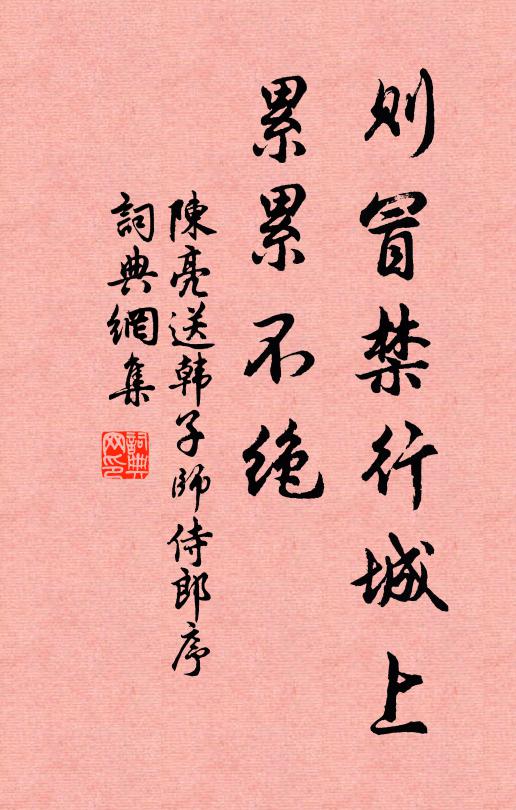 则冒禁行城上
累累不绝
陳亮送韩子師侍郎序
詞典網集
詞典网印